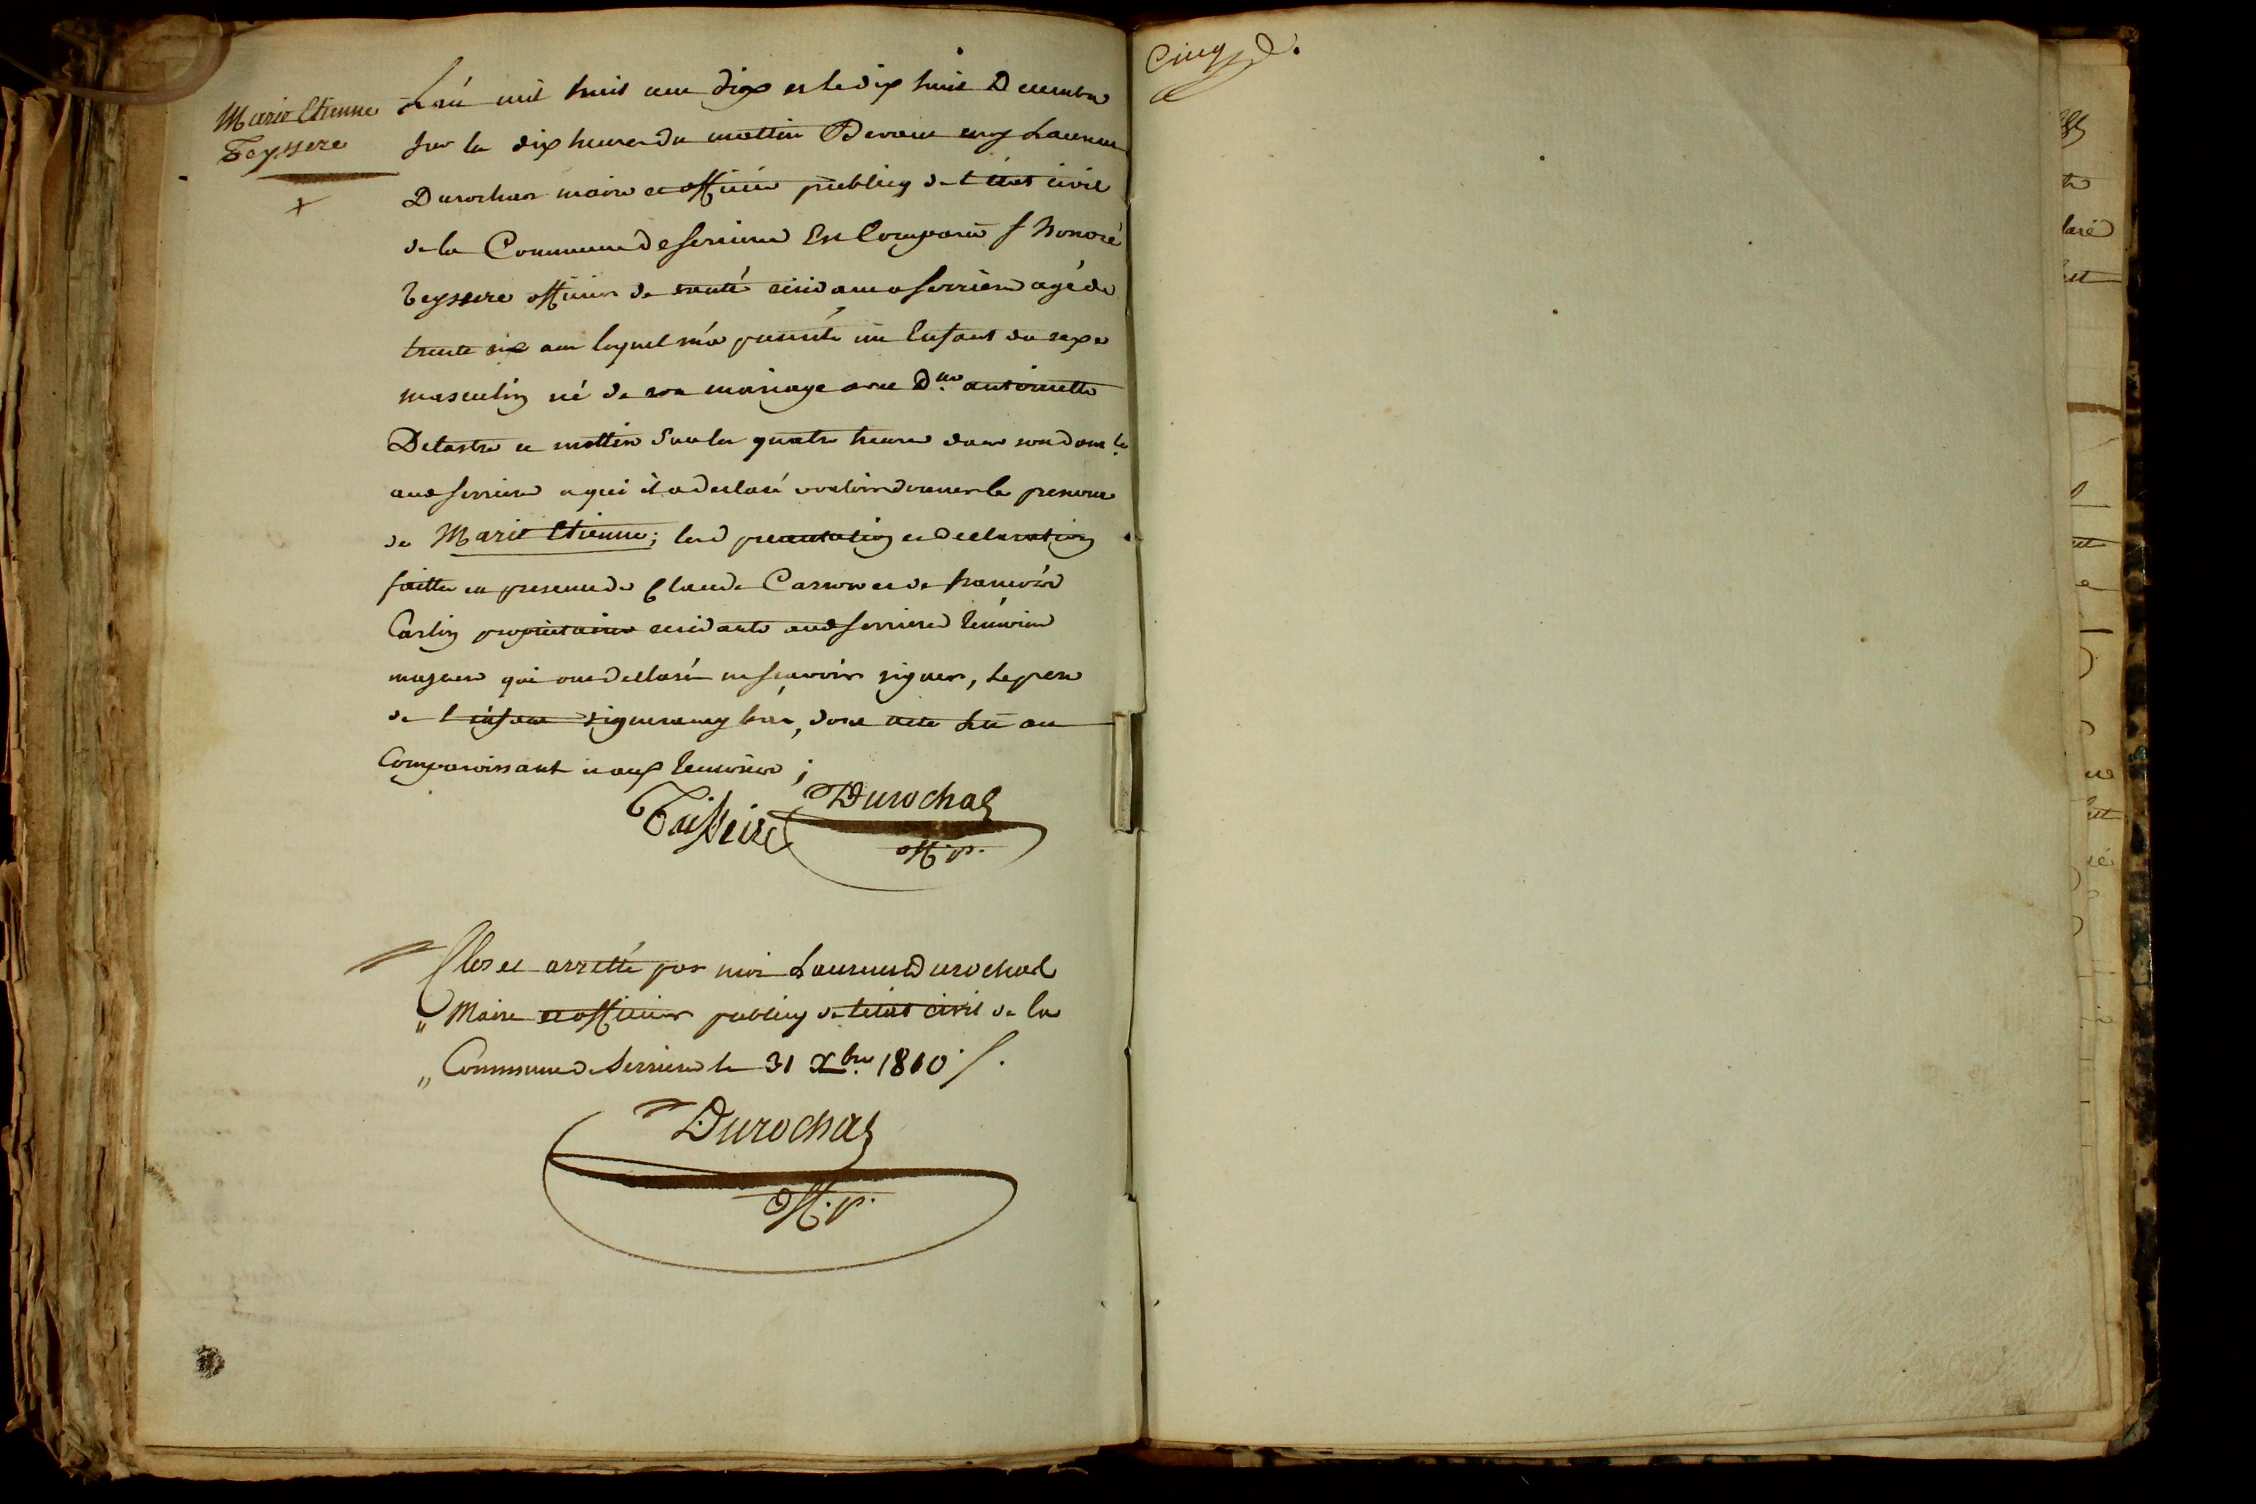 Marie Etienne
Teyssere
L'an mil huit cen dix et le dix huit Decembre
sur les dix heures du mattin Devant moy Laurens
Durochas maire et officier publicq de l'état civil
de la Commune de Serrieres Est Comparu s.r honoré
Teyssere officier de santé residant a Serrieres agé de
trente six ans lequel m'a presenté un Enfant du sexe
masculin né de son mariage avec D.lle antoinette
Delastre ce mattin sur les quatre heures dans son dom.le
aud Serrieres a qui il a declaré vouloir donner le prenom
de Marie Etienne; lesd presentation et Declaration
faittes en presence de Claude Carron et de francois
Carlin proprietaires residants aud Serrieres témoins
majeurs qui ont declaré ne sçavoir signer, Le pere
de l'enfant signera, dont acte Lu au
Comparoissant et aux temoins;
Teisseire Durochas
off. p.
Clos et arretté par moi Laurens Durochas
Maire et officier publicq de l'état civil de la
Commune de Serrieres le 31 Xbre 1810
Durochas
off. p.
Cinq